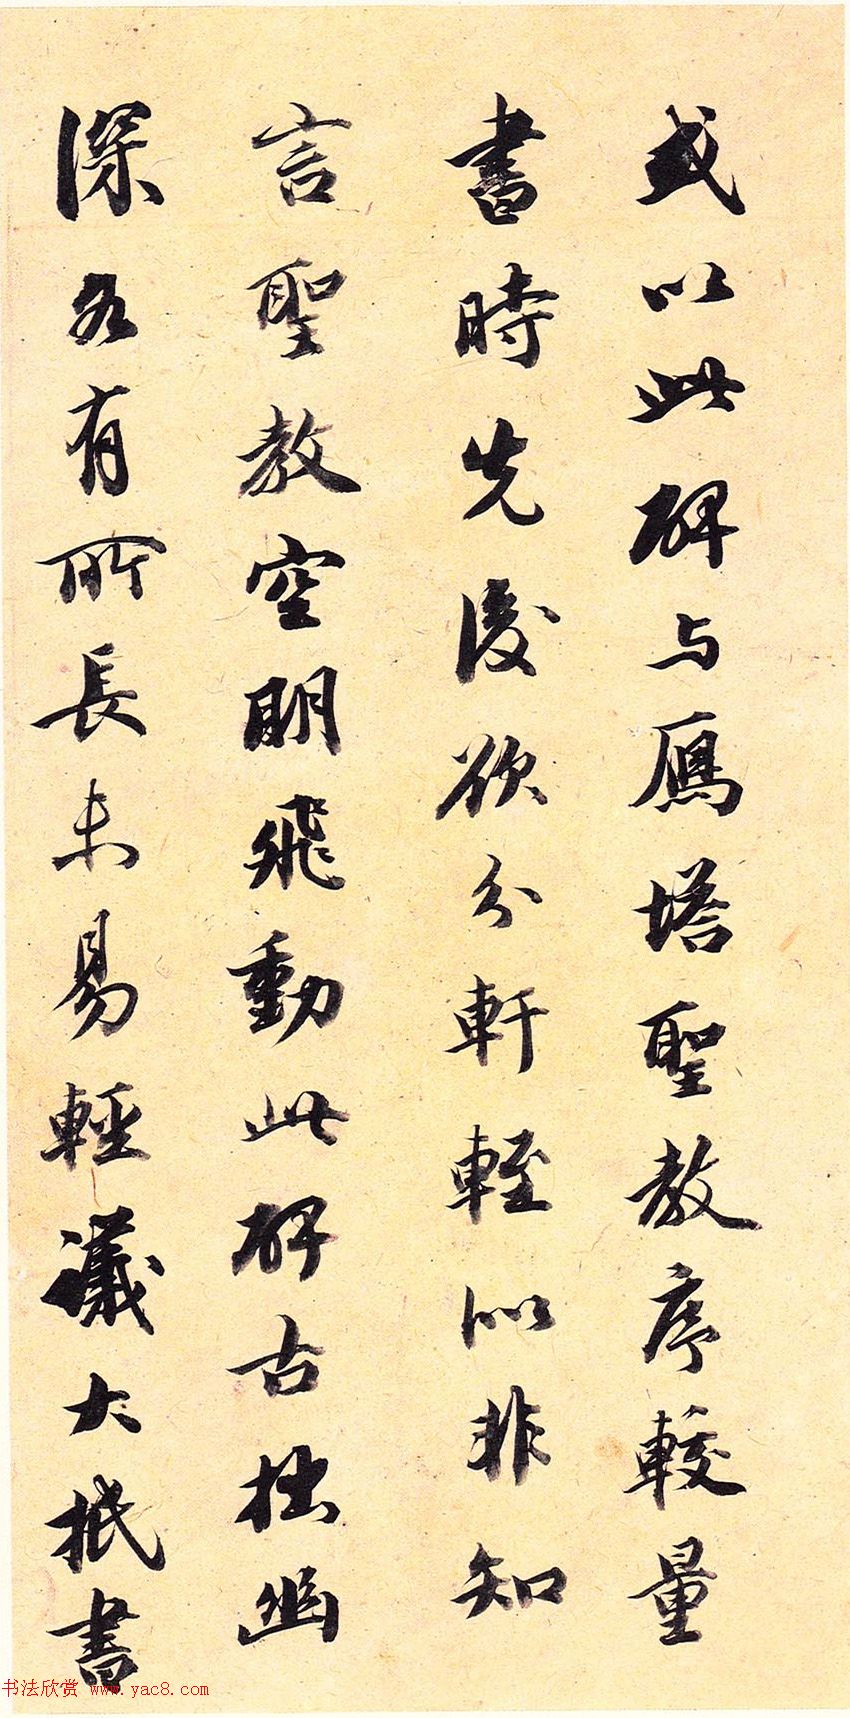 或以此碑与鴈塔聖教序較量
書時先後欲分軒輊似非知
言聖教空明飛動此碑古拙幽
深各有所長未易輕議大抵書
书法欣赏 www.yac8.com